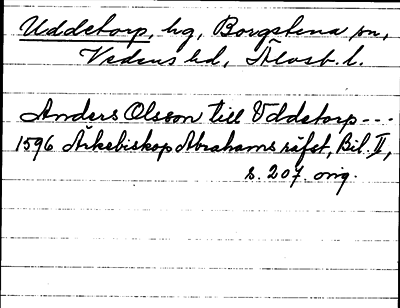 Uddetorp, hg, Borgstena sn,
Vedens hd, Älvsb. l.
Anders Olsson till Uddetorp ---
1596 Ärkebiskop Abrahams räfst, Bil. II,
s. 207. orig.